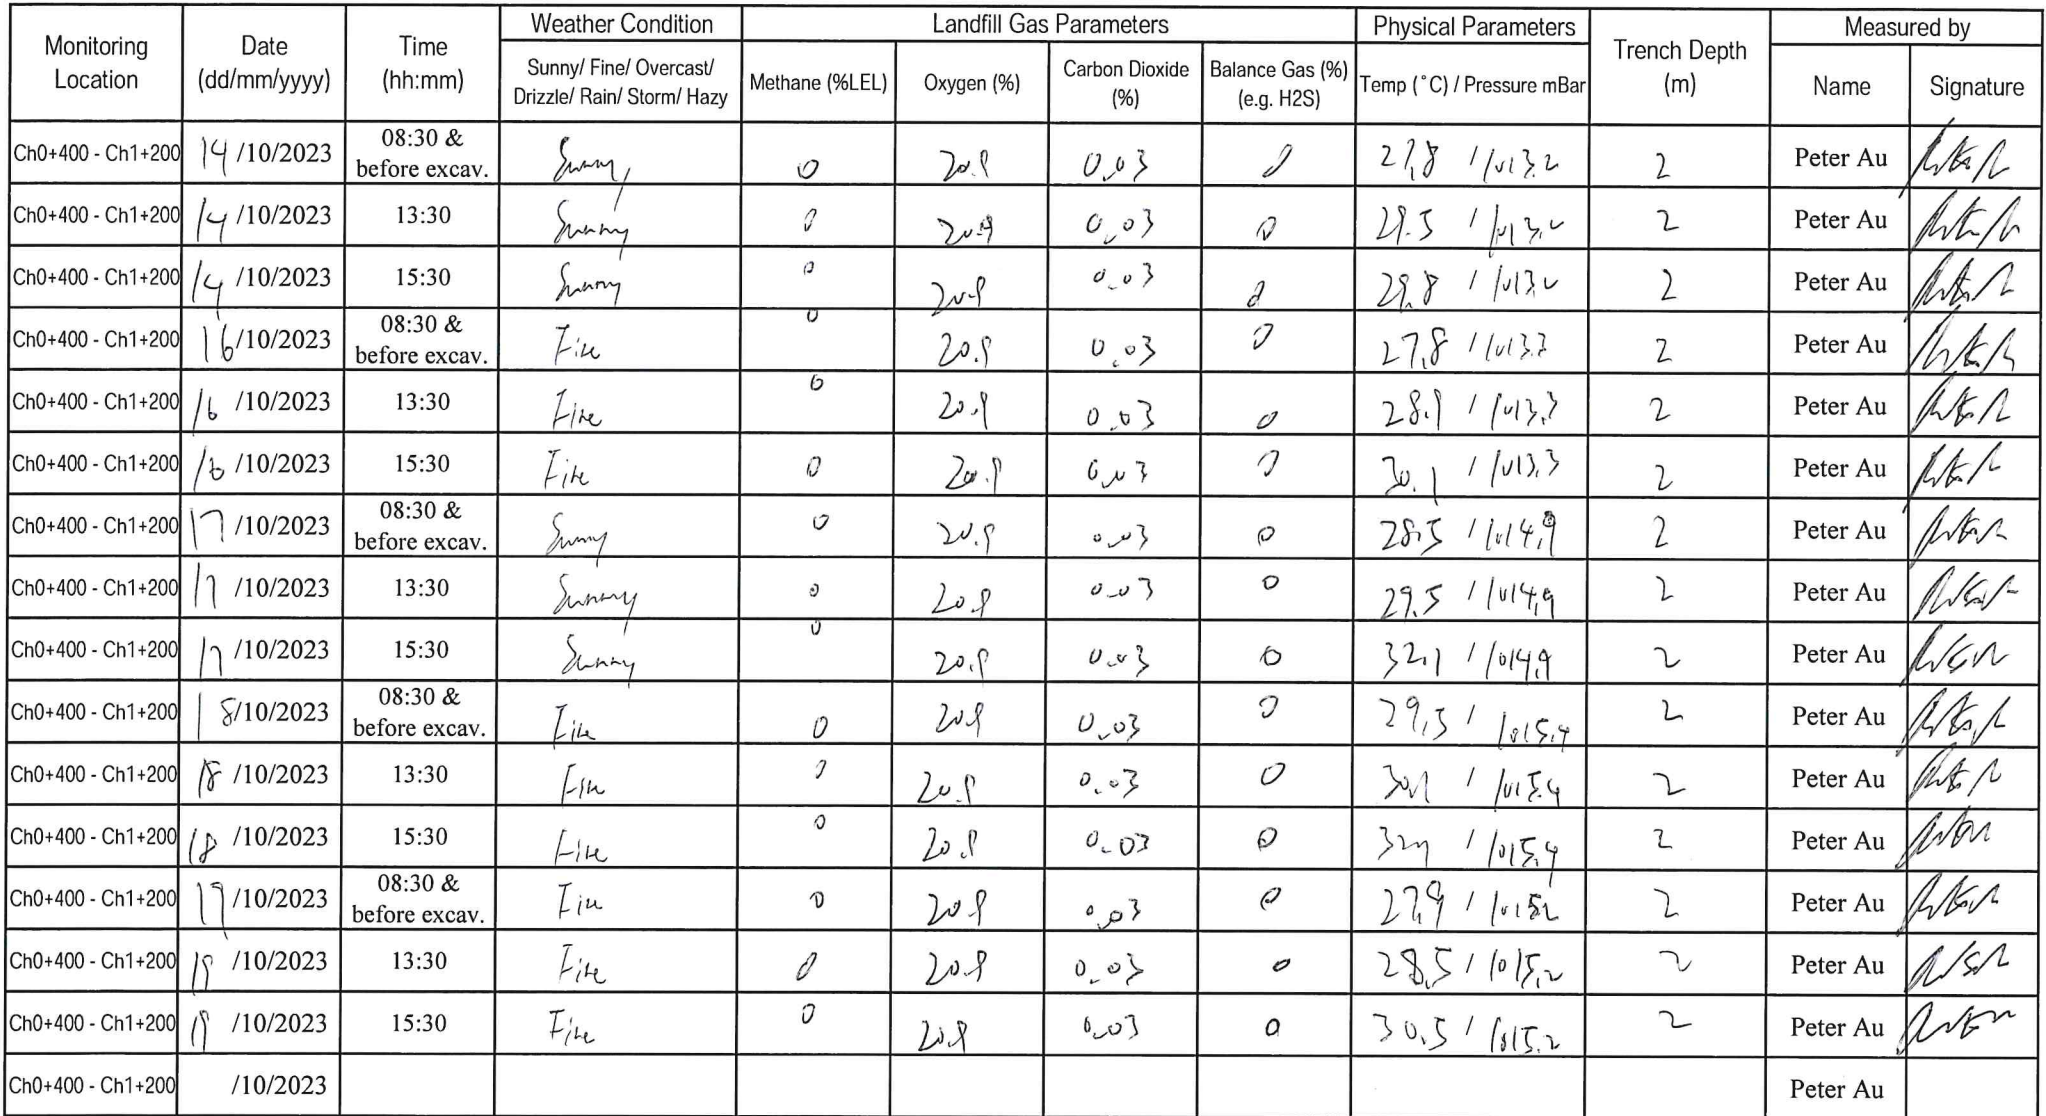 Monitoring Location | Date (dd/mm/yyyy) | Time (hh:mm) | Weather Condition | Landfill Gas Parameters | Physical Parameters | Trench Depth (m) | Measured by
Sunny/ Fine/ Overcast/ Drizzle/ Rain/ Storm/ Hazy | Methane (%LEL) | Oxygen (%) | Carbon Dioxide (%) | Balance Gas (%) (e.g. H2S) | Temp (°C) / Pressure mBar | Name | Signature
Ch0+400 - Ch1+200 | 14/10/2023 | 08:30 & before excav. | Sunny | 0 | 20.9 | 0.03 | 0 | 27.8 / 1013.2 | 2 | Peter Au
Ch0+400 - Ch1+200 | 14/10/2023 | 13:30 | Sunny | 0 | 20.9 | 0.03 | 0 | 29.5 / 1013.2 | 2 | Peter Au
Ch0+400 - Ch1+200 | 14/10/2023 | 15:30 | Sunny | 0 | 20.9 | 0.03 | 0 | 29.8 / 1013.2 | 2 | Peter Au
Ch0+400 - Ch1+200 | 16/10/2023 | 08:30 & before excav. | Fine | 0 | 20.9 | 0.03 | 0 | 27.8 / 1013.3 | 2 | Peter Au
Ch0+400 - Ch1+200 | 16/10/2023 | 13:30 | Fine | 0 | 20.9 | 0.03 | 0 | 28.9 / 1013.3 | 2 | Peter Au
Ch0+400 - Ch1+200 | 16/10/2023 | 15:30 | Fine | 0 | 20.9 | 0.03 | 0 | 30.1 / 1013.3 | 2 | Peter Au
Ch0+400 - Ch1+200 | 17/10/2023 | 08:30 & before excav. | Sunny | 0 | 20.9 | 0.03 | 0 | 28.5 / 1014.9 | 2 | Peter Au
Ch0+400 - Ch1+200 | 17/10/2023 | 13:30 | Sunny | 0 | 20.9 | 0.03 | 0 | 29.5 / 1014.9 | 2 | Peter Au
Ch0+400 - Ch1+200 | 17/10/2023 | 15:30 | Sunny | 0 | 20.9 | 0.03 | 0 | 32.1 / 1014.9 | 2 | Peter Au
Ch0+400 - Ch1+200 | 18/10/2023 | 08:30 & before excav. | Fine | 0 | 20.9 | 0.03 | 0 | 29.5 / 1015.4 | 2 | Peter Au
Ch0+400 - Ch1+200 | 18/10/2023 | 13:30 | Fine | 0 | 20.9 | 0.03 | 0 | 30.1 / 1015.4 | 2 | Peter Au
Ch0+400 - Ch1+200 | 18/10/2023 | 15:30 | Fine | 0 | 20.9 | 0.03 | 0 | / 1015.4 | 2 | Peter Au
Ch0+400 - Ch1+200 | 19/10/2023 | 08:30 & before excav. | Fine | 0 | 20.9 | 0.03 | 0 | 27.9 / 1015.2 | 2 | Peter Au
Ch0+400 - Ch1+200 | 19/10/2023 | 13:30 | Fine | 0 | 20.9 | 0.03 | 0 | 28.5 / 1015.2 | 2 | Peter Au
Ch0+400 - Ch1+200 | 19/10/2023 | 15:30 | Fine | 0 | 20.9 | 0.03 | 0 | 30.5 / 1015.2 | 2 | Peter Au
Ch0+400 - Ch1+200 | /10/2023 | Peter Au